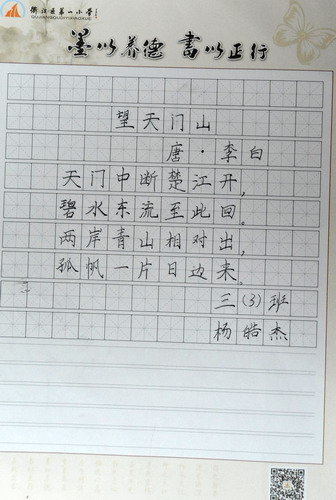 衢江区第一小学
QUJIANGQUDIYIXIAOXUE
墨以养德 書以正行
望天门山
唐·李白
天门中断楚江开，
碧水东流至此回。
两岸青山相对出，
孤帆一片日边来。
三（3）班
杨皓杰